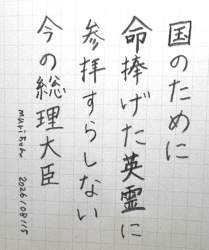 国のために
命捧げた英霊に
参拝すらしない
今の総理大臣
2026/08/15